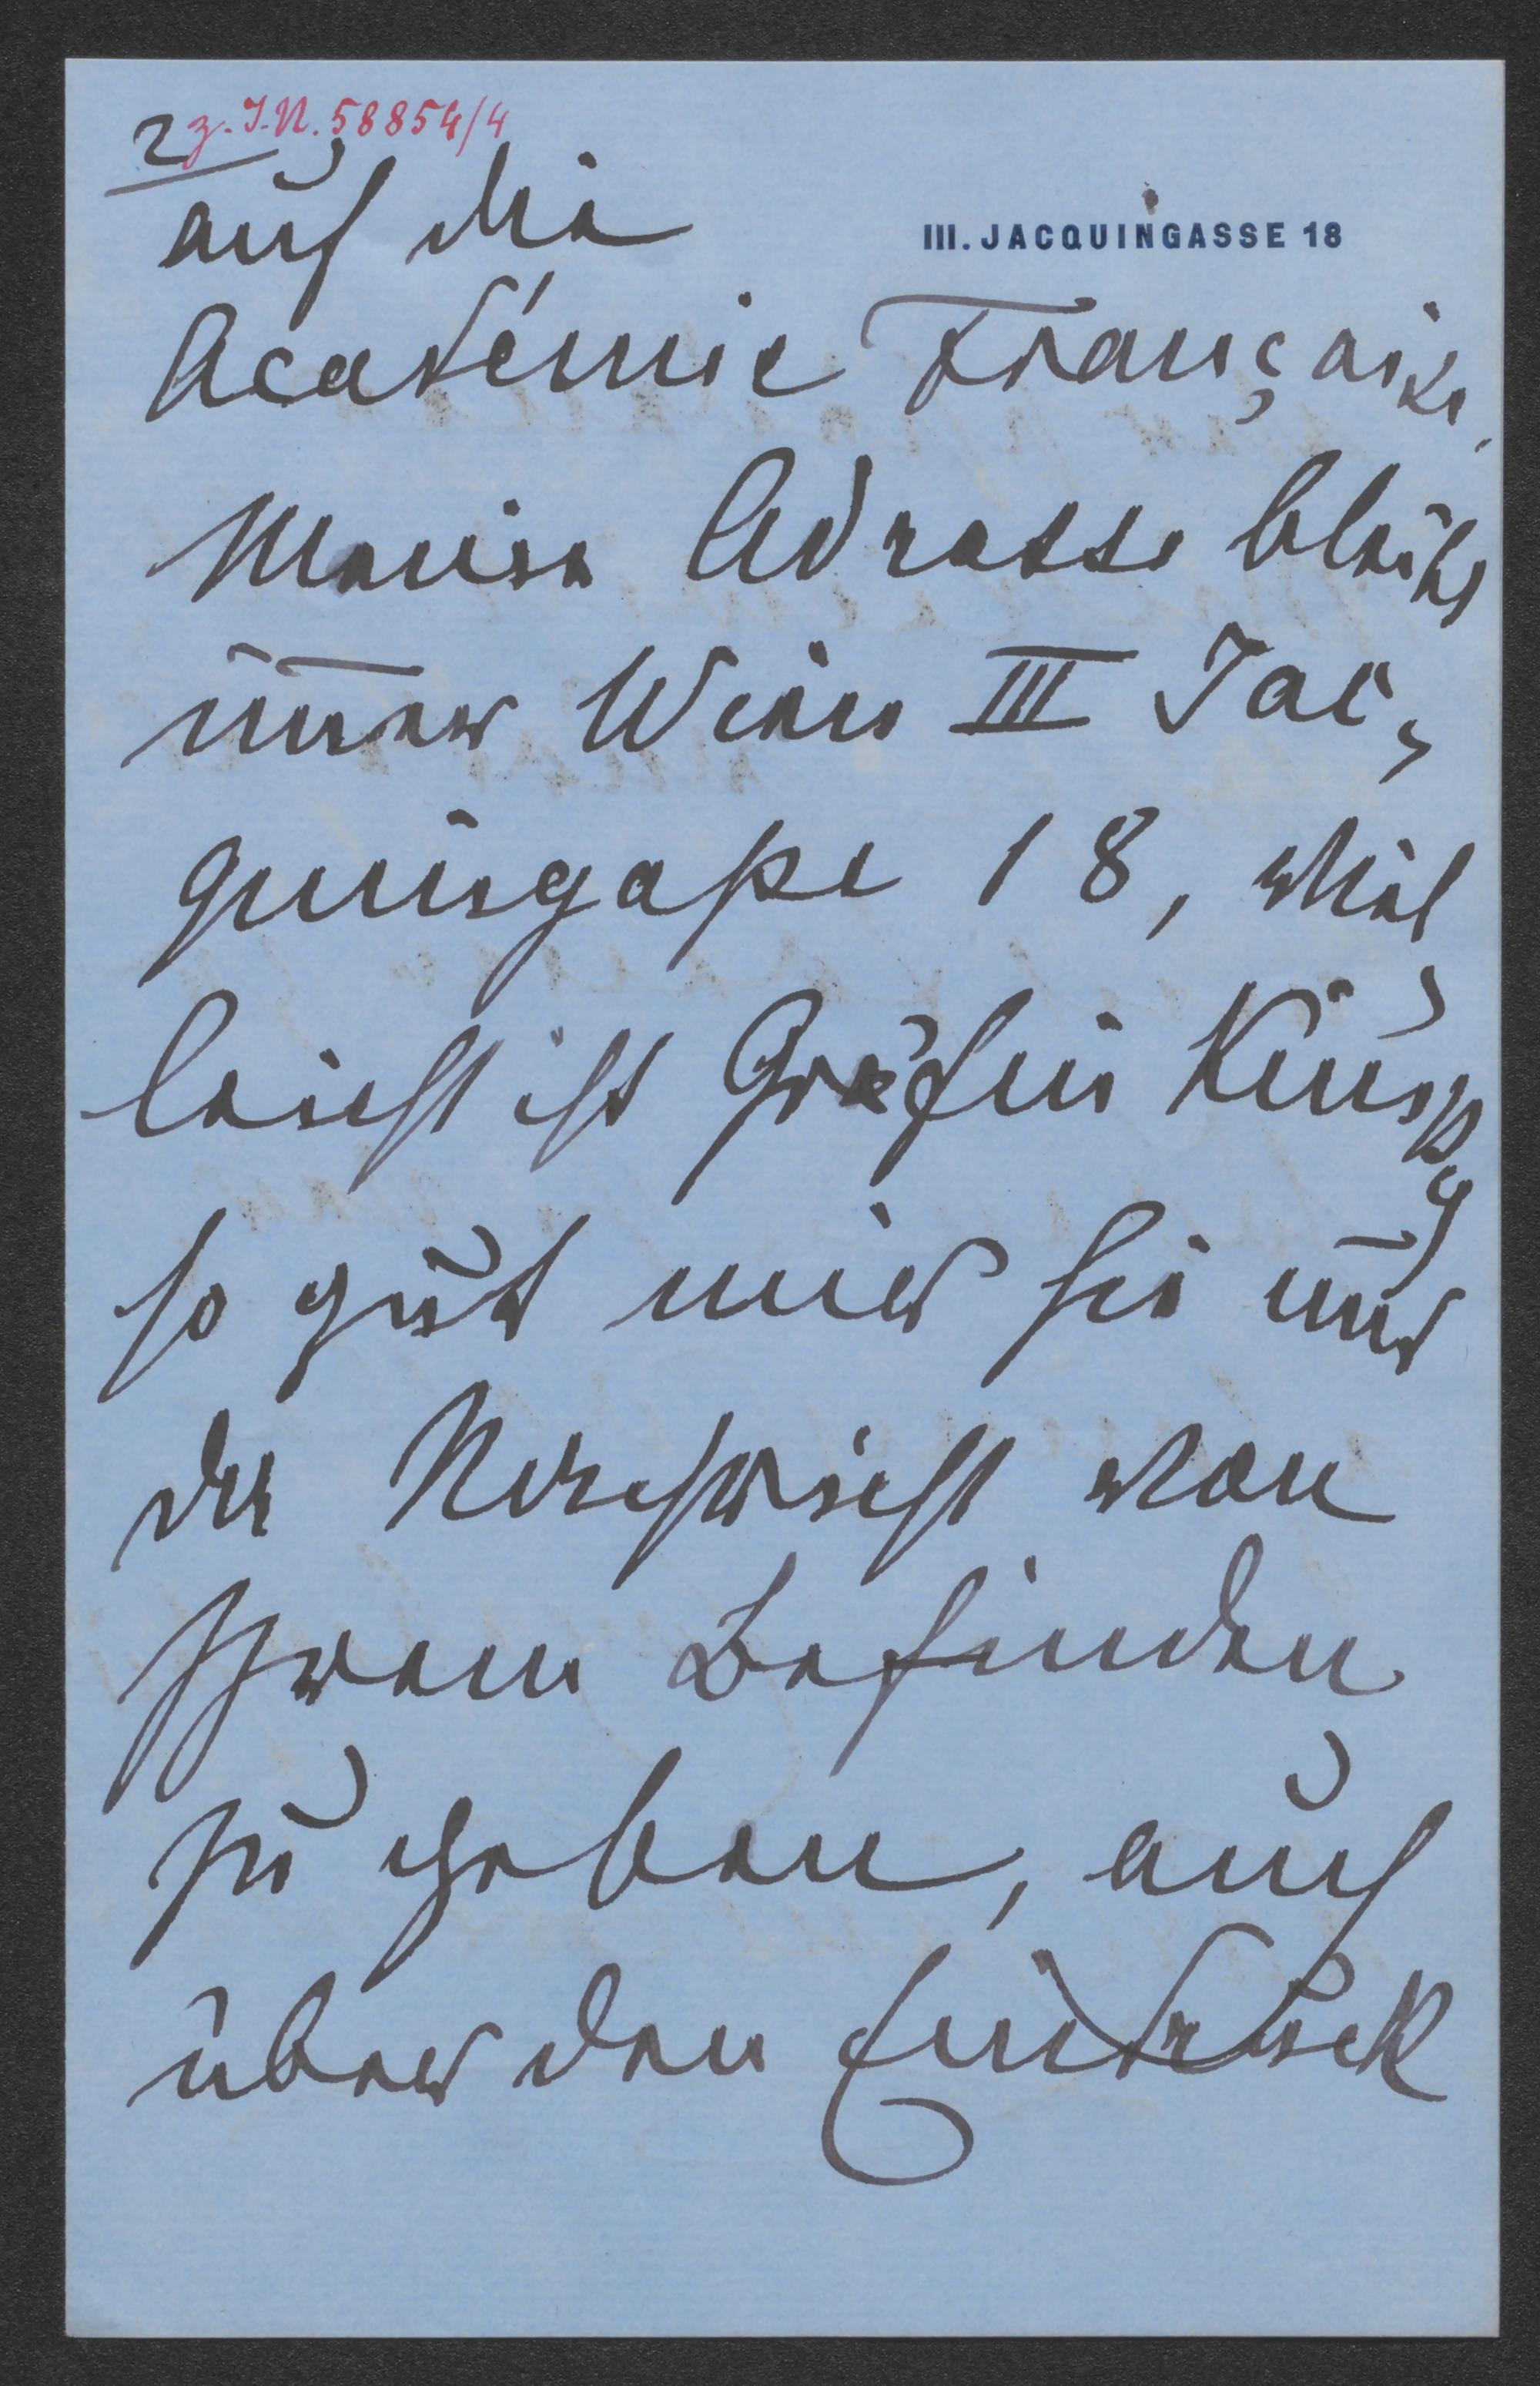 2 z. I.N. 58854/4
auf die
III. JACQUINGASSE 18
Académie Française,
Meine Adresse bleibt
im̅er Wien III Jac-
quingasse 18, viel-
leicht ist Gräfin Kinsky
so gut mir hie und
da Nachricht von
Ihrem Befinden
zu geben, auch
über den Eindruck